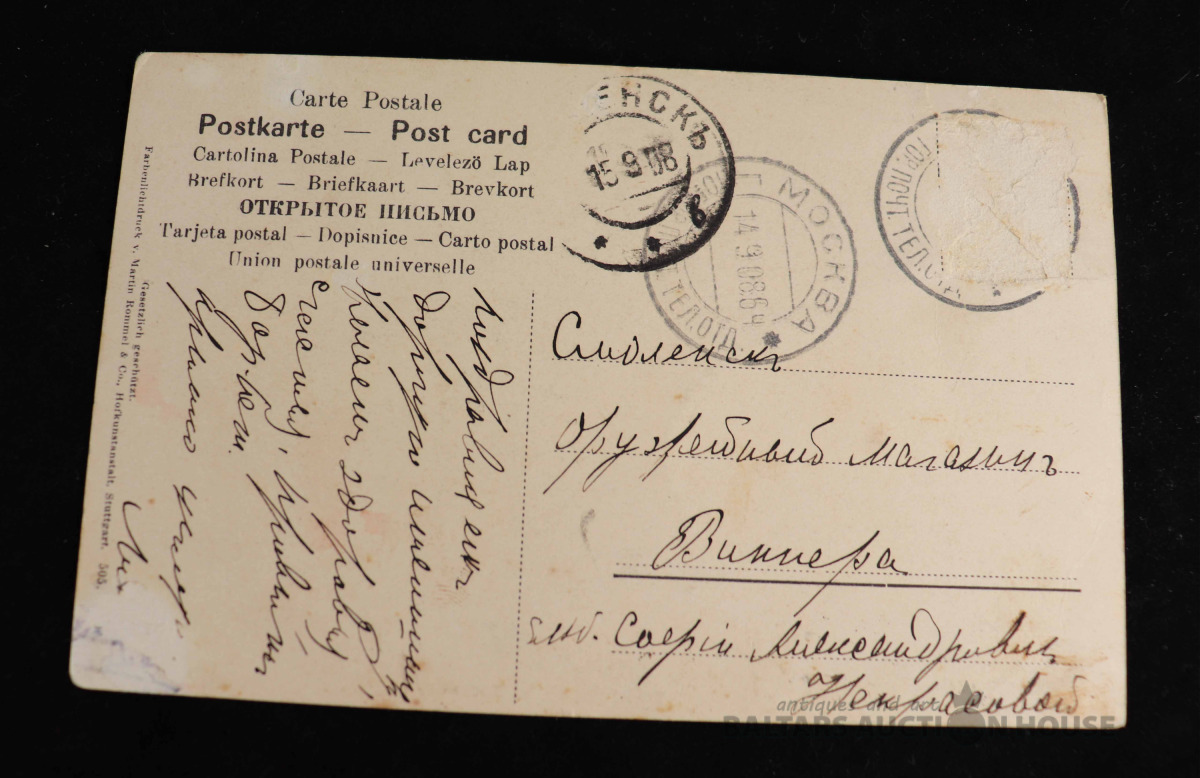 Carte Postale
Postkarte — Post card
Cartolina Postale — Levelező Lap
Brefkort — Briefkaart — Brevkort
ОТКРЫТОЕ ПИСЬМО
Tarjeta postal — Dopisnice — Carto postal
Union postale universelle
Farbenlichtdruck v. Martin Rommel & Co., Hofkunstanstalt, Stuttgart. 505.
Gesetzlich geschützt.
ЕНСКЪ
15 9 08
в
МОСКВА
14 9 08 6 ч
ТЕЛ.ОТД.
ГОР. ПОЧТ. ТЕЛ. ОТД.
Смоленскъ
Оружейный магазинъ
Виннера
Софіи Александровнѣ
Некрасовой
Поздравляемъ
дорогую именинницу
Желаемъ здоровья,
счастья,
antiques and art
BALTARS AUCTION HOUSE